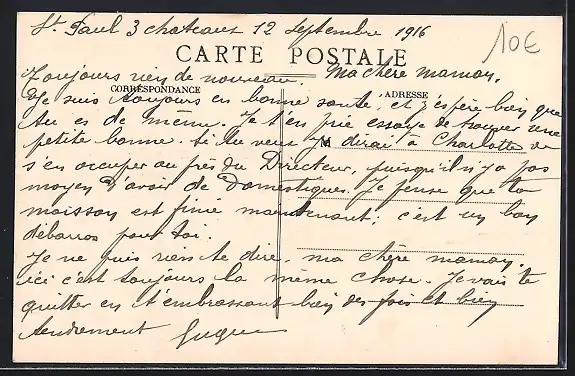 St Paul 3 chateaux 12 Septembre 1916
10€
CARTE POSTALE
Toujours rien de nouveau. Ma chère maman,
CORRESPONDANCE
ADRESSE
Je suis toujours en bonne santé, et j'espère bien que
tu es de meme. Je t'en prie essaye de trouver une
petite bonne. Si tu veux je dirai à Charlotte de
s'en occuper auprès du Directeur, puisqu'il n'y a pas
moyen d'avoir de domestiques. Je pense que la
moisson est finie maintenant; c'est un bon
débarras pour toi.
Je ne puis rien te dire, ma chère maman,
ici c'est toujours la même chose. Je vais te
quitter en t'embrassant bien des fois et bien
tendrement